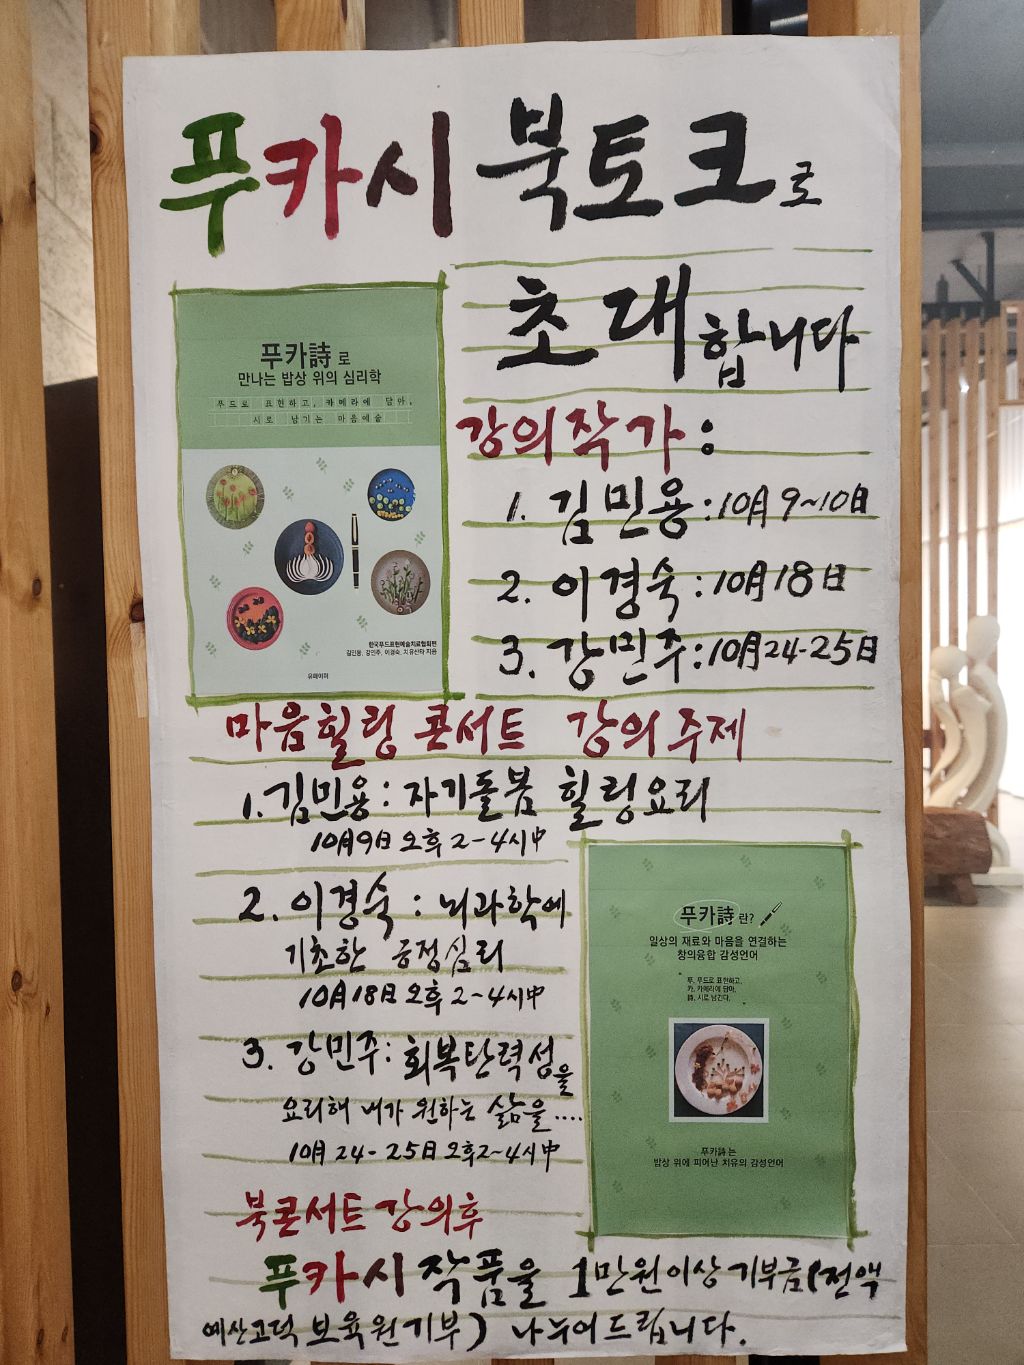 푸카시 북토크로
초대합니다
푸카詩로
만나는 밥상 위의 심리학
푸드로 표현하고, 카메라에 담아,
시로 남기는 마음예술
한국푸드표현예술치료협회편
김민용, 강민주, 이경숙, 치유산타 지음
유페이퍼
강의작가 :
1. 김민용 : 10月 9~10日
2. 이경숙 : 10月 18日
3. 강민주 : 10月 24-25日
마음힐링 콘서트 강의주제
1. 김민용 : 자기돌봄 힐링요리
10月9日 오후 2-4시中
2. 이경숙 : 뇌과학에
기초한 긍정심리
10月18日 오후 2-4시中
3. 강민주 : 회복탄력성을
요리해 내가 원하는 삶을....
10月 24-25日 오후2~4시中
푸카詩란?
일상의 재료와 마음을 연결하는
창의융합 감성언어
푸, 푸드로 표현하고,
카, 카메라에 담아,
詩, 시로 남긴다.
푸카詩는
밥상 위에 피어난 치유의 감성언어
북콘서트 강의후
푸카시 작품을 1만원이상 기부금(전액
예산고덕 보육원기부) 나누어드립니다.